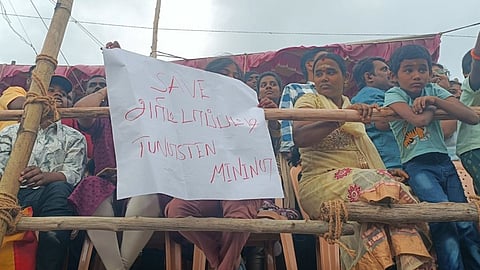 SAVE
அரிட்டாபட்டி
TUNGSTEN
MINING